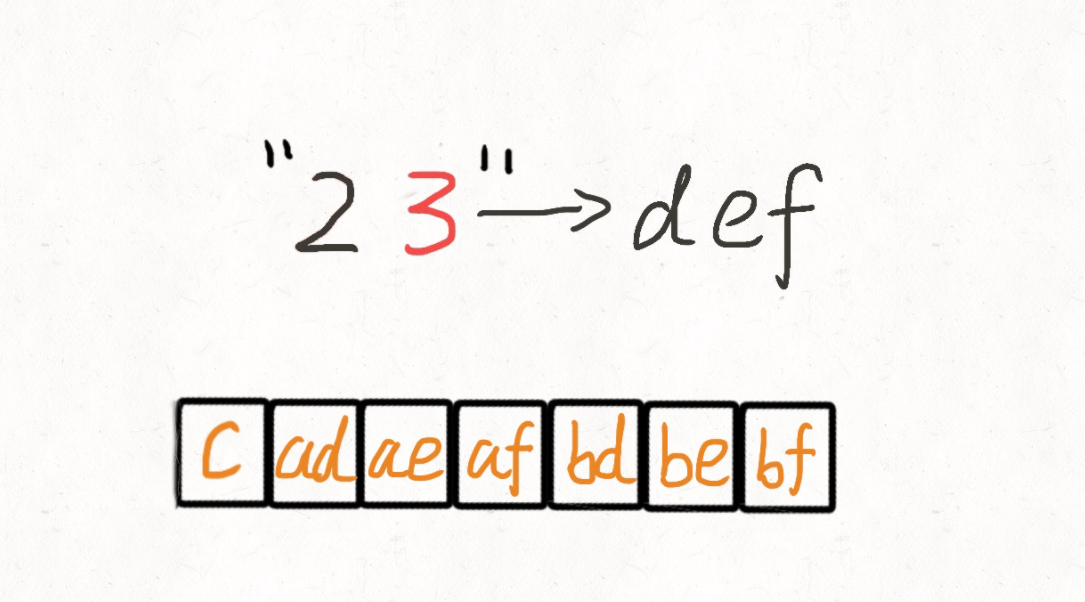 "2 3"→def
c ad ae af bd be bf